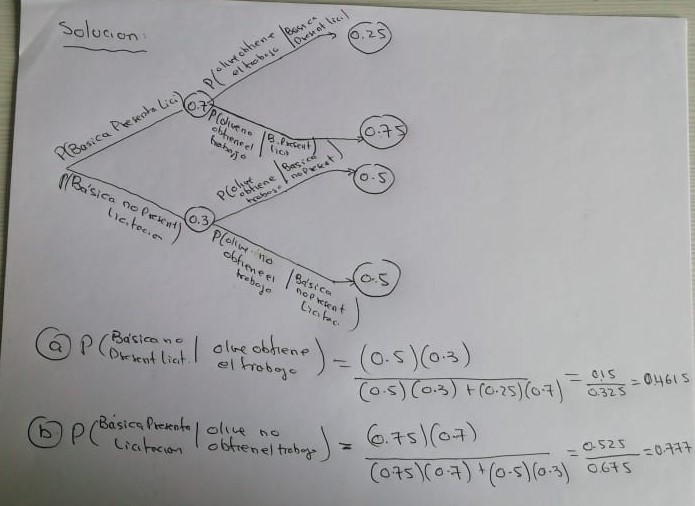 Solucion:
P(Basica Presenta Lici)
0.7
P(olive obtiene el trabajo / Basica Present lici)
0.25
P(olive no obtiene el trabajo / B. Present licit)
0.75
P(Básica no Present licitacion)
0.3
P(olive obtiene trabajo / Basica no present)
0.5
P(olive no obtiene el trabajo / Básica no present licitac.)
0.5
a P(Básica no Present licit. | olive obtiene el trabajo) = (0.5)(0.3) / (0.5)(0.3) + (0.25)(0.7) = 0.15 / 0.325 = 0.4615
b P(Básica Presenta Licitacion | olive no obtiene el trabajo) = (0.75)(0.7) / (0.75)(0.7) + (0.5)(0.3) = 0.525 / 0.675 = 0.777